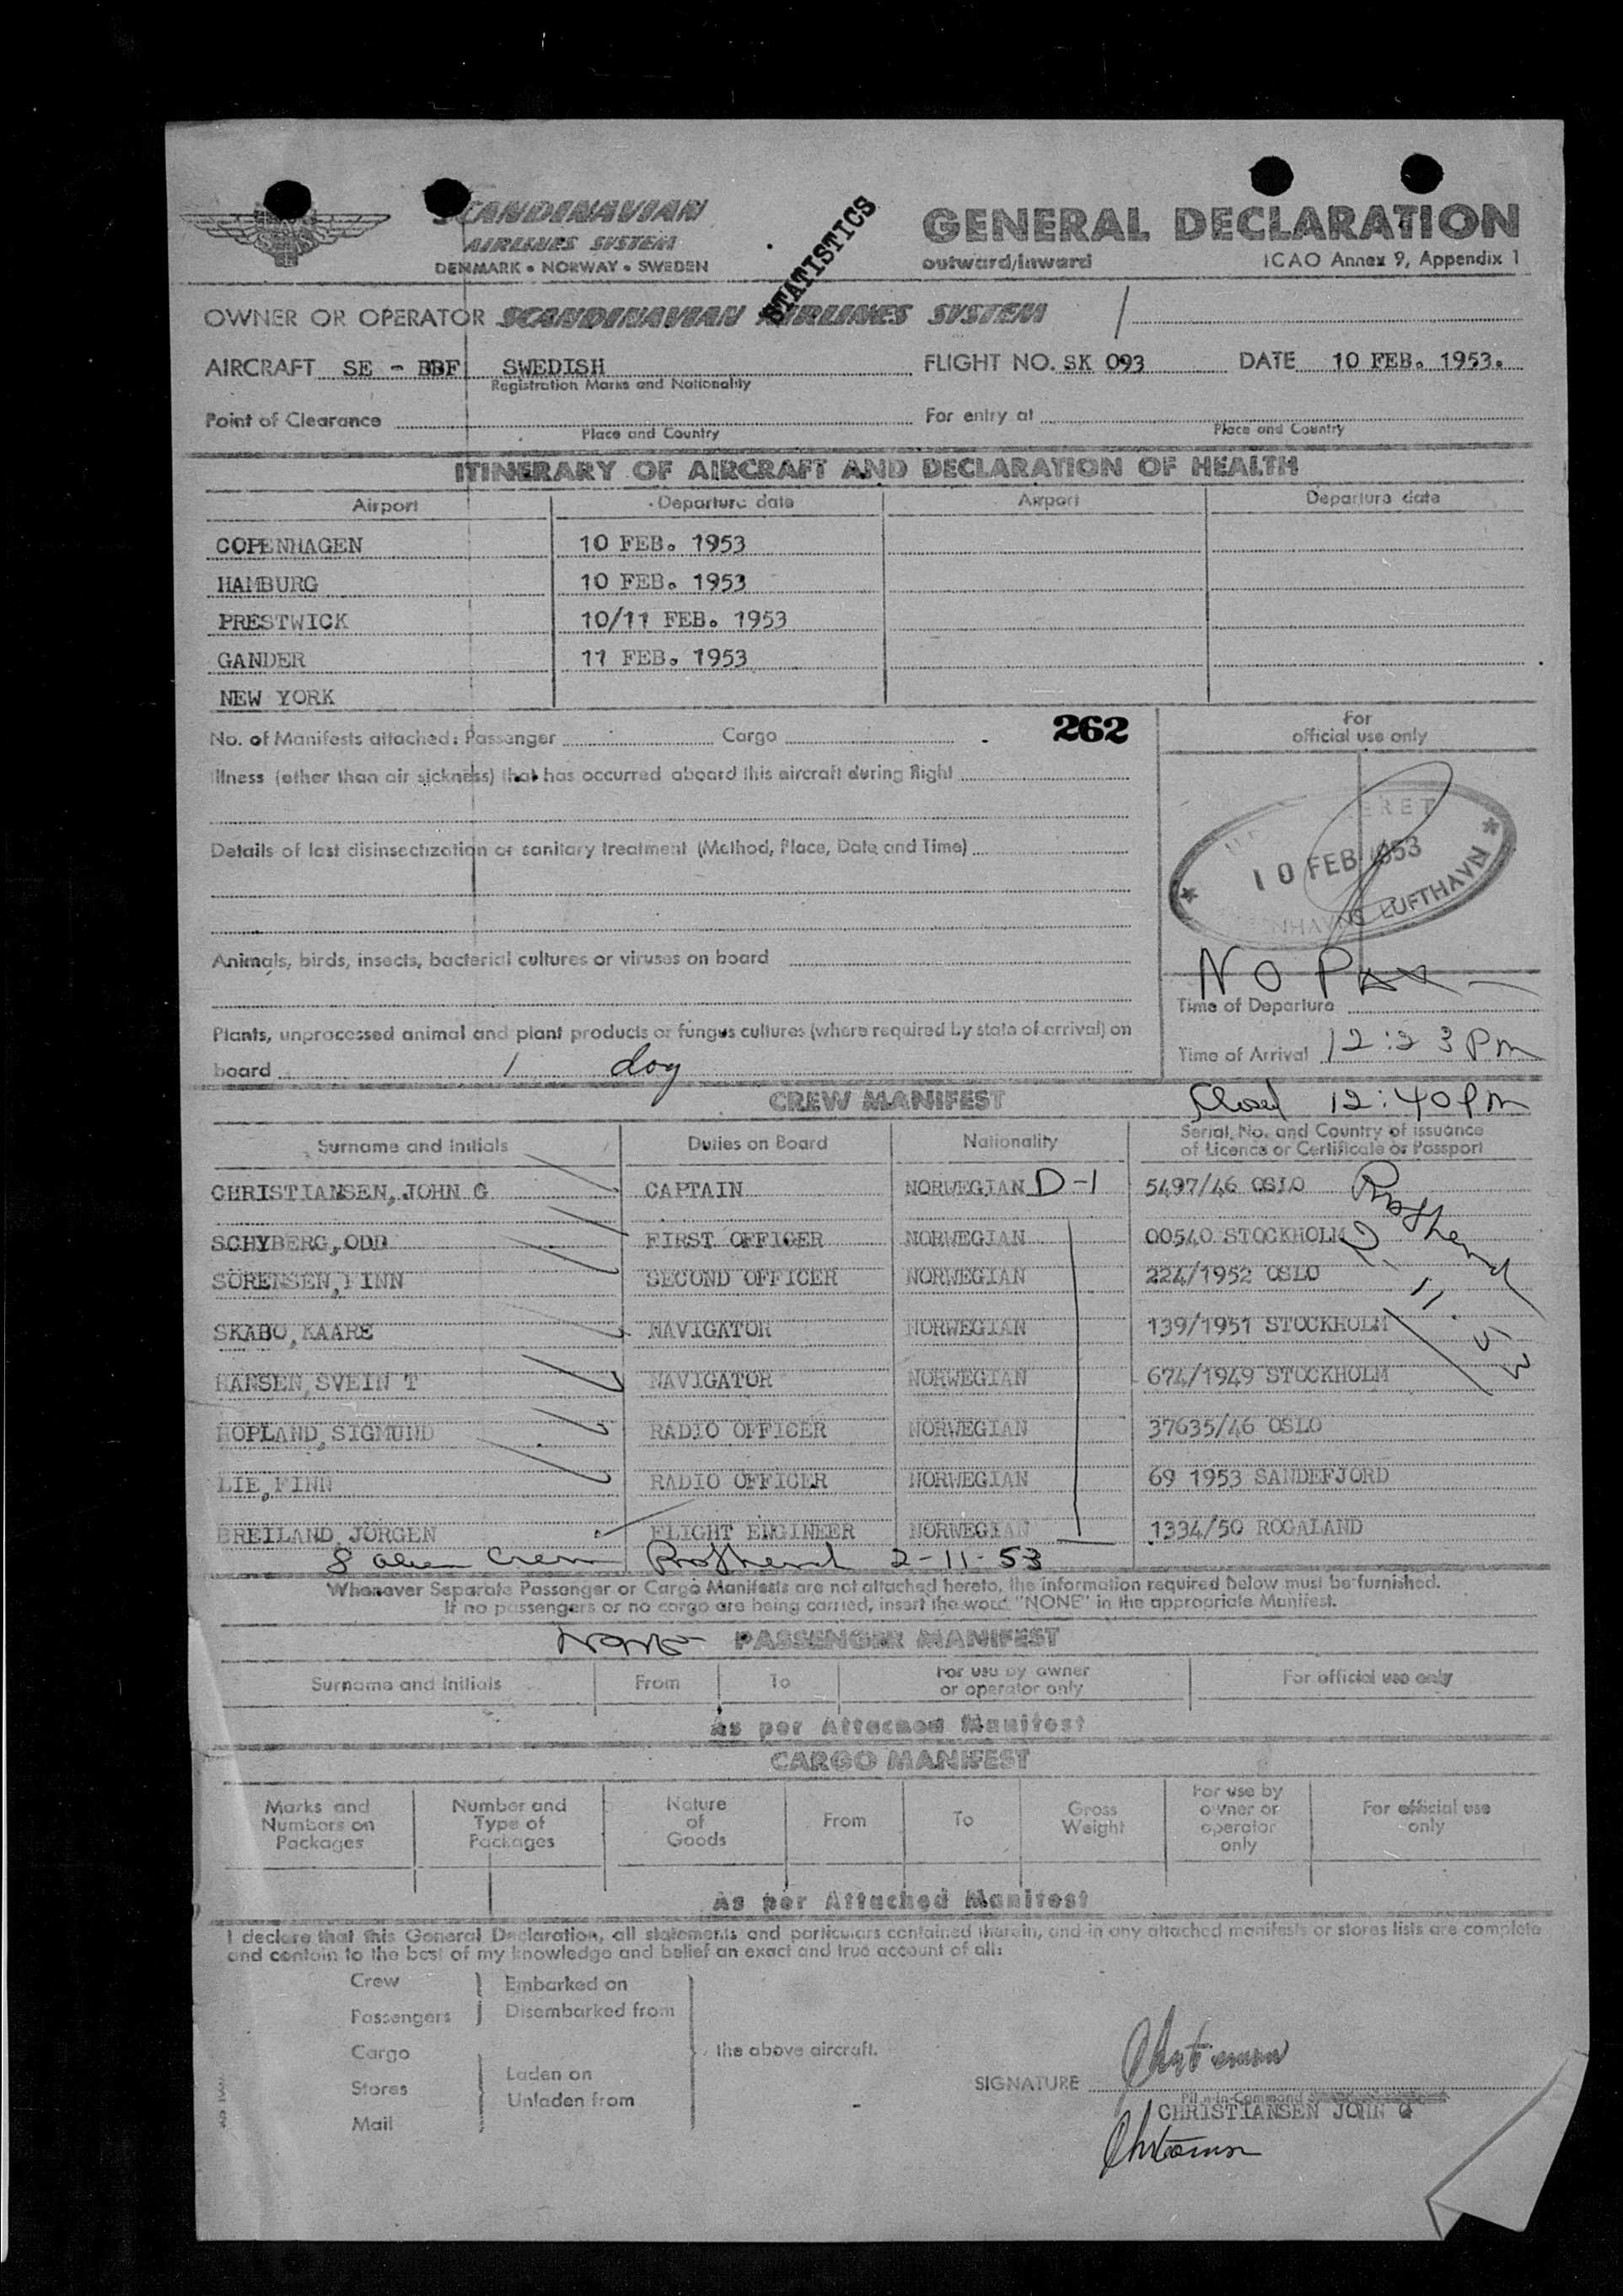 SCANDINAVIAN
AIRLINES SYSTEM
DENMARK • NORWAY • SWEDEN
STATISTICS
GENERAL DECLARATION
outward/inward
ICAO Annex 9, Appendix 1
OWNER OR OPERATOR SCANDINAVIAN AIRLINES SYSTEM
AIRCRAFT SE - BBF SWEDISH FLIGHT NO. SK 093 DATE 10 FEB. 1953.
Registration Marks and Nationality
Point of Clearance For entry at
Place and Country Place and Country
ITINERARY OF AIRCRAFT AND DECLARATION OF HEALTH
Airport Departure date Airport Departure date
COPENHAGEN 10 FEB. 1953
HAMBURG 10 FEB. 1953
PRESTWICK 10/11 FEB. 1953
GANDER 11 FEB. 1953
NEW YORK
No. of Manifests attached: Passenger Cargo 262
For
official use only
Illness (other than air sickness) that has occurred aboard this aircraft during flight
10 FEB 1953
LUFTHAVN
Details of last disinsectization or sanitary treatment (Method, Place, Date and Time)
Animals, birds, insects, bacterial cultures or viruses on board
No Pax
Time of Departure
Plants, unprocessed animal and plant products or fungus cultures (where required by state of arrival) on
board 1 dog
Time of Arrival 12:23 Pm
CREW MANIFEST
Closed 12:40 Pm
Surname and Initials Duties on Board Nationality Serial, No. and Country of issuance
of Licence or Certificate or Passport
CHRISTIANSEN, JOHN G CAPTAIN NORWEGIAN D-1 5497/46 OSLO
SCHYBERG, ODD FIRST OFFICER NORWEGIAN 00540 STOCKHOLM
SÖRENSEN, FINN SECOND OFFICER NORWEGIAN 224/1952 OSLO
SKABO, KAARE NAVIGATOR NORWEGIAN 139/1951 STOCKHOLM
HANSEN, SVEIN T NAVIGATOR NORWEGIAN 674/1949 STOCKHOLM
HOPLAND, SIGMUND RADIO OFFICER NORWEGIAN 37635/46 OSLO
LIE, FINN RADIO OFFICER NORWEGIAN 69 1953 SANDEFJORD
BREILAND, JÖRGEN FLIGHT ENGINEER NORWEGIAN 1334/50 ROGALAND
8 alien Crew 2-11-53
2.11.53
Whenever Separate Passenger or Cargo Manifests are not attached hereto, the information required below must be furnished.
If no passengers or no cargo are being carried, insert the word "NONE" in the appropriate Manifest.
None PASSENGER MANIFEST
Surname and Initials From To For use by owner
or operator only For official use only
As per Attached Manifest
CARGO MANIFEST
Marks and
Numbers on
Packages
Number and
Type of
Packages
Nature
of
Goods
From
To
Gross
Weight
For use by
owner or
operator
only
For official use
only
As per Attached Manifest
I declare that this General Declaration, all statements and particulars contained therein, and in any attached manifests or stores lists are complete
and contain to the best of my knowledge and belief an exact and true account of all:
Crew
Passengers
Embarked on
Disembarked from
Cargo
Stores
Mail
Laden on
Unladen from
the above aircraft.
SIGNATURE
CHRISTIANSEN JOHN G